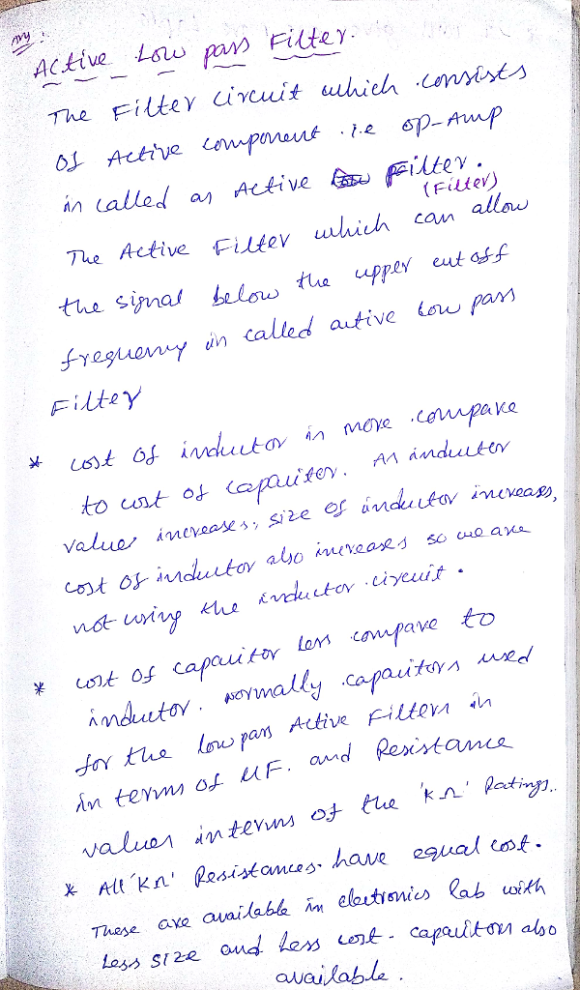 Active Low pass Filter.
The Filter circuit which consists
of Active component i.e op-Amp
is called as Active Filter.
(Filter)
The Active Filter which can allow
the signal below the upper cut off
frequency is called active low pass
Filter
* cost of inductor is more compare
to cost of capacitor. As inductor
value increases, size of inductor increases,
cost of inductor also increases so we are
not using the inductor circuit.
* cost of capacitor less compare to
inductor. Normally capacitors used
for the low pass Active Filters in
in terms of μF. and Resistance
values in terms of the 'KΩ' Ratings..
* All 'KΩ' Resistances have equal cost.
These are available in electronics lab with
Less size and Less cost. capacitors also
available.